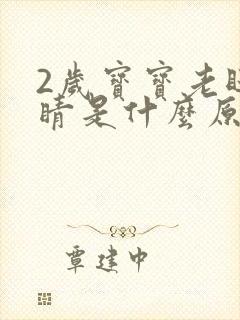 2歲寶寶老
睛是什麼原
覃建中